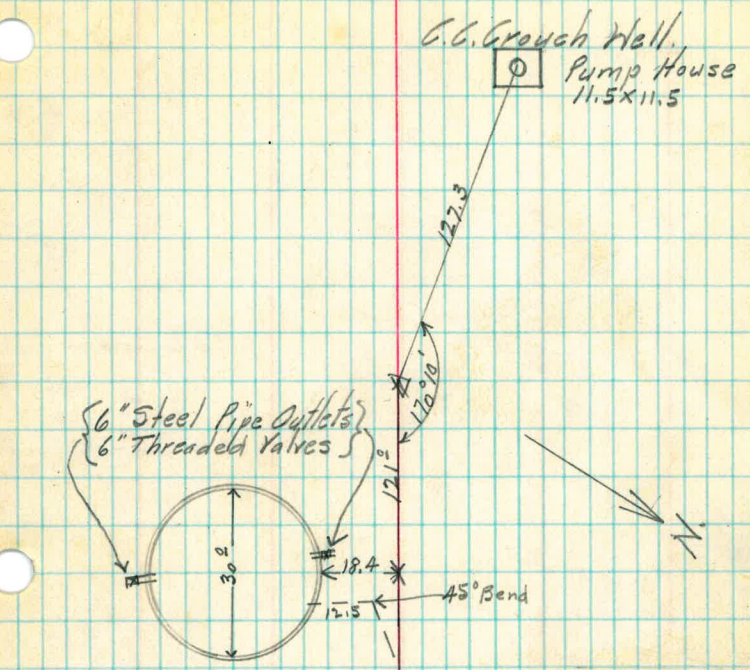 C.C. Crouch Well.
Pump House
11.5x11.5
127.3
170°10'
{6" Steel Pipe Outlets}
{6" Threaded Valves }
121⁰
30⁰
18.4
12.5
45° Bend
N.